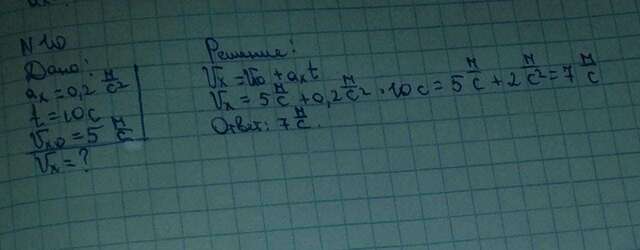 N 10
Дано:
aₓ = 0,2 м/с²
t = 10 с
Vₓ₀ = 5 м/с
Vₓ = ?
Решение:
Vₓ = V₀ + aₓt
Vₓ = 5 м/с + 0,2 м/с² · 10 с = 5 м/с + 2 м/с² = 7 м/с
Ответ: 7 м/с.